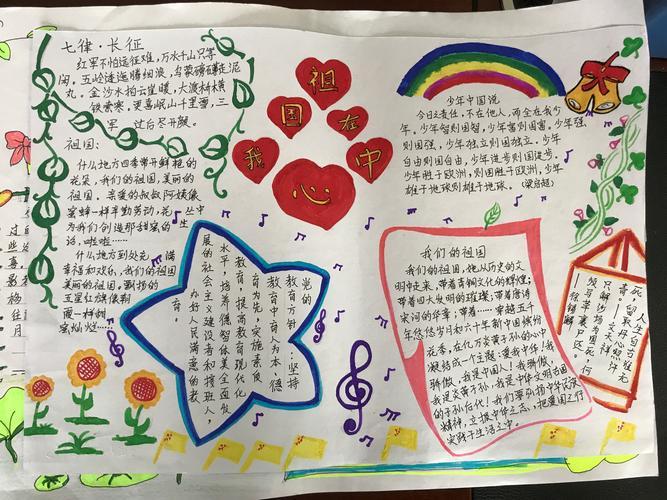 七律·长征
红军不怕远征难,万水千山只等
闲。五岭逶迤腾细浪,乌蒙磅礴走泥
丸。金沙水拍云崖暖,大渡桥横
铁索寒。更喜岷山千里雪,三
军过后尽开颜。
祖国:
什么地方四季常开鲜艳的
花朵,我们的祖国,美丽的
祖国。亲爱的叔叔阿姨像
蜜蜂一样辛勤劳动,花丛中
为我们创造那甜蜜的生
活,啦啦……
什么地方到处充满
幸福和欢乐,我们的祖国
美丽的祖国。飘扬的
五星红旗像朝
霞一样鲜
艳灿烂……
祖
国在
我中
心
少年中国说
今日之责任,不在他人,而全在我少
年。少年智则国智,少年富则国富。少年强
则国强,少年独立则国独立。少年
自由则国自由,少年进步则国进步。
少年胜于欧洲,则国胜于欧洲,少年
雄于地球则国雄于地球。(梁启超)
党的
教育方针:坚持
教育中育人为本、德
育为先,实施素质
教育,提高教育现代化
水平,培养德智体美全面发
展的社会主义建设者和接班人,
办好人民满意的教
育。
我们的祖国
我们的祖国,她从历史的文
明中走来,带着青铜文化的辉煌;
带着四大发明的璀璨;带着唐诗
宋词的华章;带着……穿越五千
年悠悠岁月和六十年新中国缤纷
花季,在亿万炎黄子孙的心中
凝结成一个主题:爱我中华!我
骄傲,我是中国人!我骄傲,
我是炎黄子孙,我是中华文明古国
的子孙后代!我们要弘扬中华民族
精神,立振中华之志,把爱国之行
实践于生活之中。
人生自古谁无
死?留取丹心照汗
青。——文天祥
只解沙场为国死,何
须马革裹尸还。
——徐锡麟